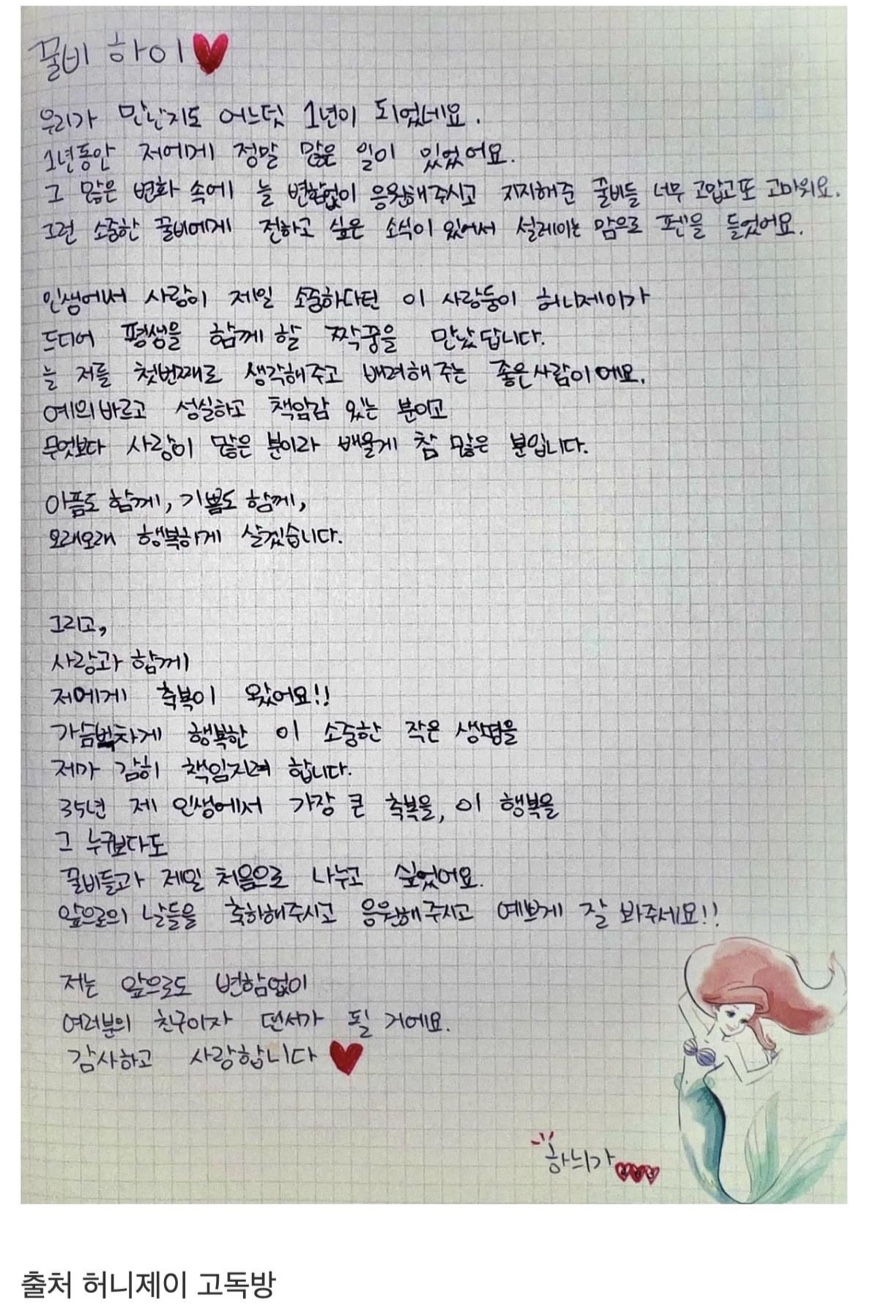 꿀비 하이
우리가 만난지도 어느덧 1년이 되었네요.
1년동안 저에게 정말 많은 일이 있었어요.
그 많은 변화 속에 늘 변함없이 응원해주시고 지지해준 꿀비들 너무 고맙고 또 고마워요.
그런 소중한 꿀비에게 전하고 싶은 소식이 있어서 설레이는 맘으로 펜을 들었어요.
인생에서 사랑이 제일 소중하다던 이 사랑둥이 허니제이가
드디어 평생을 함께 할 짝꿍을 만났답니다.
늘 저를 첫번째로 생각해주고 배려해 주는 좋은 사람이에요.
예의바르고 성실하고 책임감 있는 분이고
무엇보다 사랑이 많은 분이라 배울게 참 많은 분입니다.
아픔도 함께, 기쁨도 함께,
오래오래 행복하게 살겠습니다.
그리고,
사랑과 함께
저에게 축복이 왔어요!!
가슴벅차게 행복한 이 소중한 작은 생명을
제가 감히 책임지려 합니다.
35년 제 인생에서 가장 큰 축복을, 이 행복을
그 누구보다도
꿀비들과 제일 처음으로 나누고 싶었어요.
앞으로의 날들을 축하해주시고 응원해주시고 예쁘게 잘 봐주세요!!
저는 앞으로도 변함없이
여러분의 친구이자 댄서가 될 거에요.
감사하고 사랑합니다
하늬가
출처 허니제이 고독방